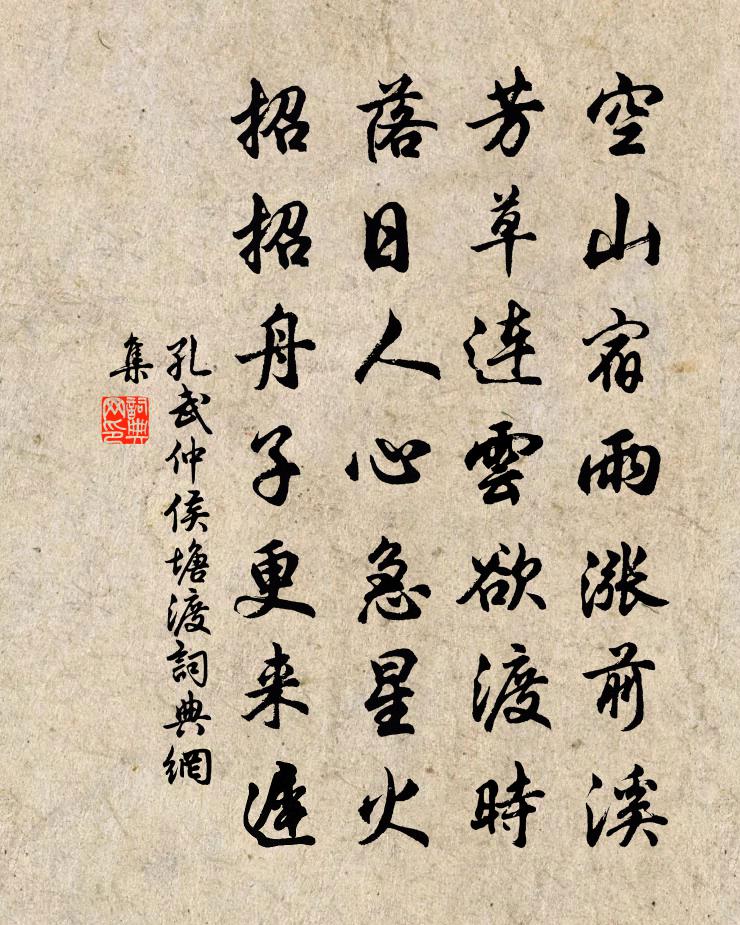 空山宿雨漲前溪
芳草連雲欲渡時
落日人心急星火
招招舟子更来遲
孔武仲侯塘渡詞典網
集
詞典
网印